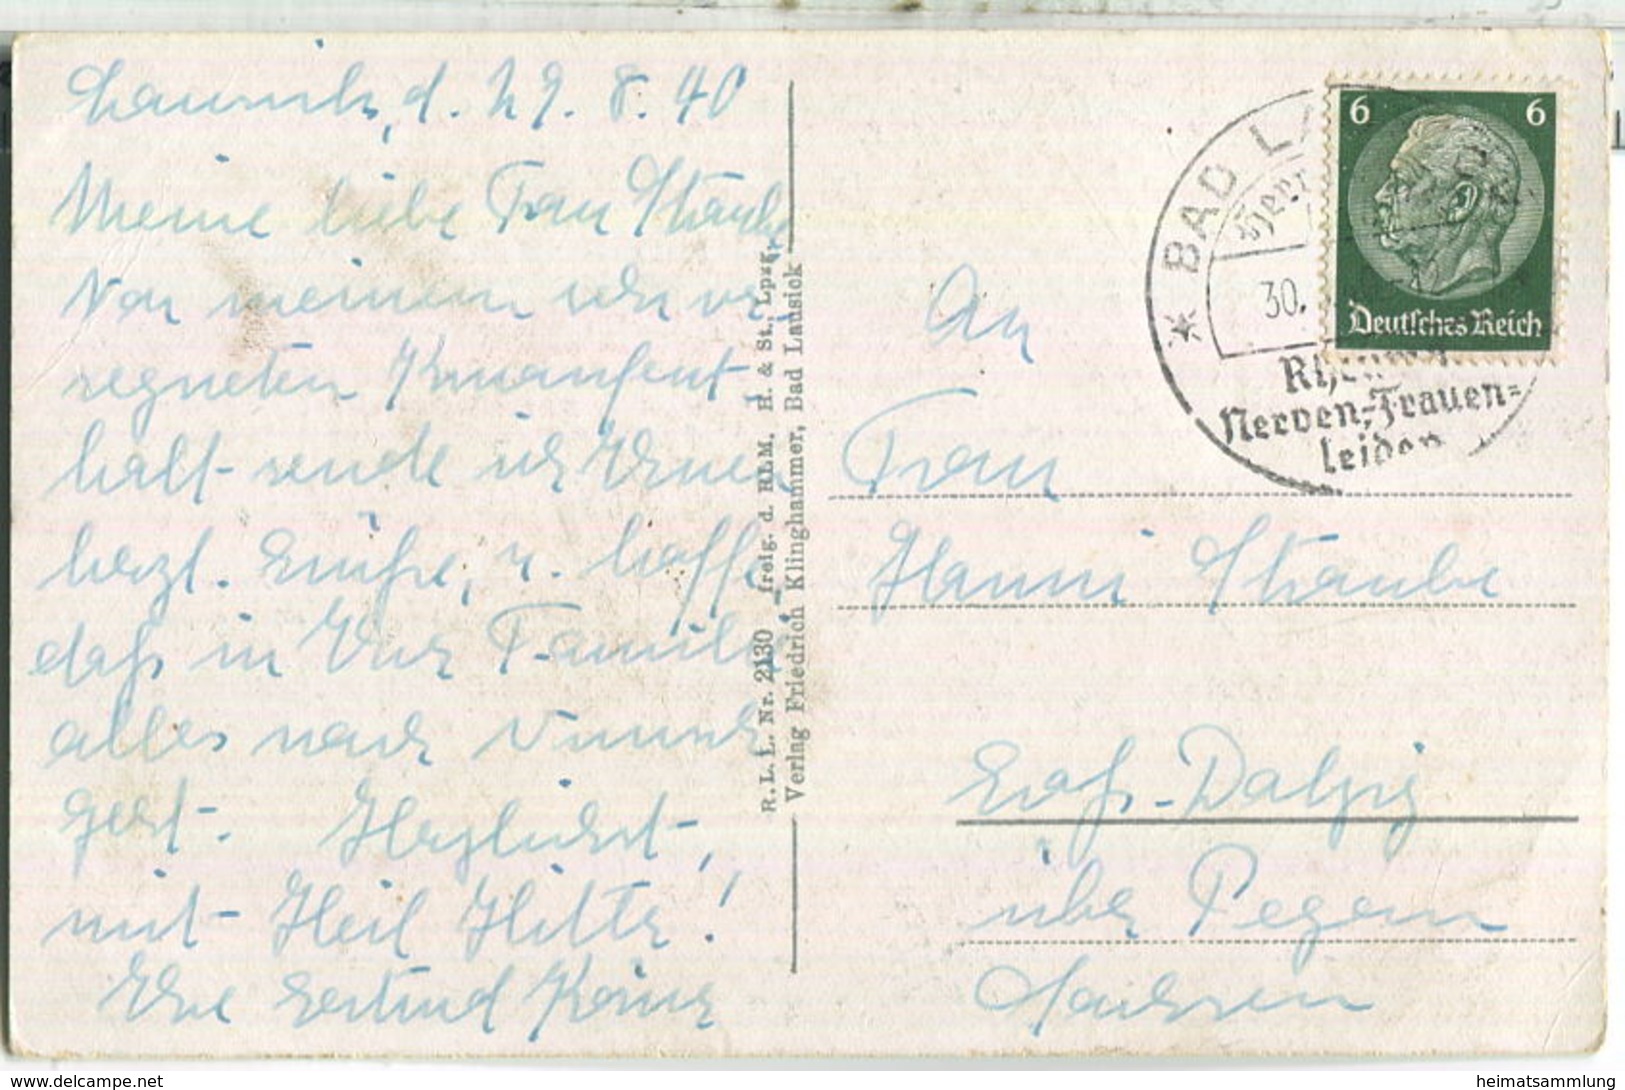 Lausick, d. 29. 8. 40
Meine liebe Frau Straube
Von meinem sehr ver-
regneten Kuraufent-
halt sende ich Ihnen
herzl. Grüße, u. hoffe
daß in Ihrer Familie
alles nach Wunsch
geht. Herzlichst,
mit Heil Hitler!
Ihre Gertrud König
R. L. L. Nr. 2130 freig. d. RLM. H. & St., Lpzg.
Verlag Friedrich Klinghammer, Bad Lausick
An
Frau
Hanni Straube
Groß-Dalzig
über Pegau
Sachsen
BAD LA
Herz
30.
Rheuma
Nerven-, Frauen-
leiden
6 6
Deutsches Reich
heimatsammlung